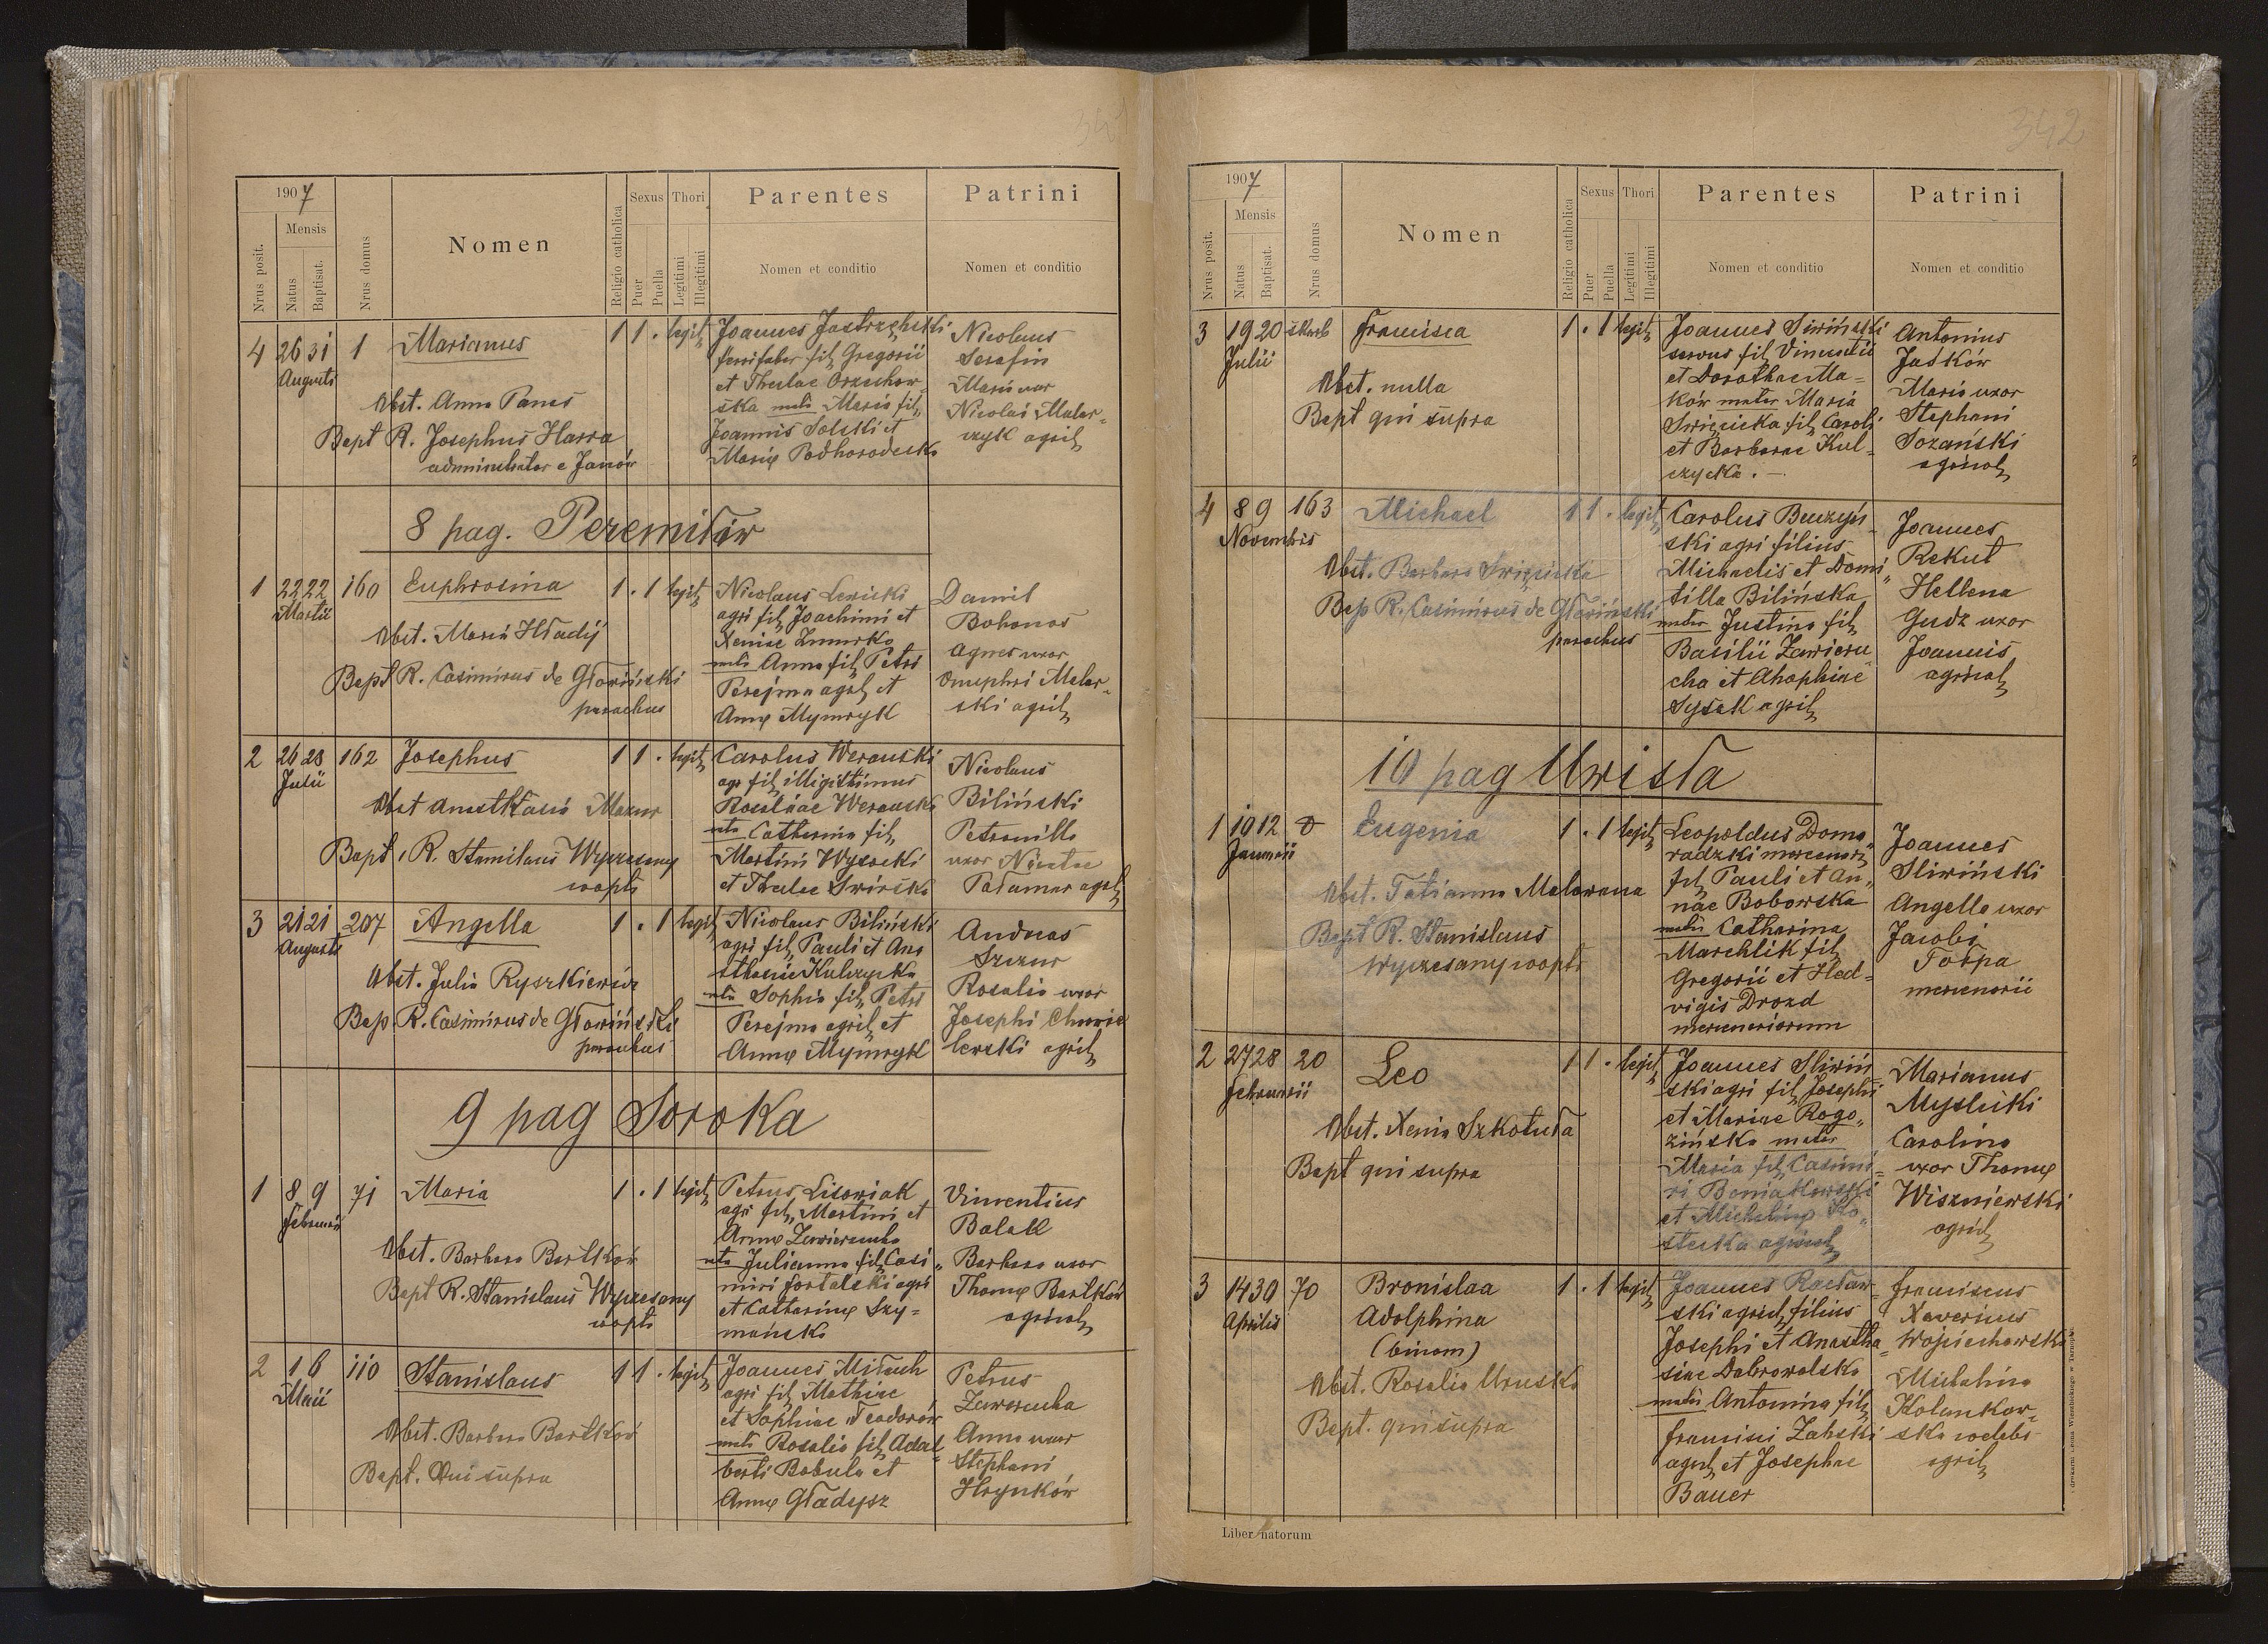 342
1907
Nrus posit.
Mensis
Natus
Baptisat.
Nrus domus
Nomen
Religio catholica
Sexus
Puer
Puella
Thori
Legitimi
Illegitimi
Parentes
Nomen et conditio
Patrini
Nomen et conditio
4 26 31 1 Marianus 1 1 . legit
Augusti
Obst. Anna Panas
Bapt R. Josephus Harra
administrator e Janów
Joannes Jastrzębski
ferrifaber fil Gregorii
et Theclae Orzechow-
ska mater Maria fil
Joannis Solski et
Mariæ Podhorodecka
Nicolaus
Serafin
Maria uxor
Nicolai Malar-
czyk agricol
8 pag. Peremiłów
1 22 22 160 Euphrosina 1 . 1 legit
Martii
Obst. Maria Hładij
Bapt R. Casimirus de Głowiński
parochus
Nicolaus Lewicki
agri fil Joachimi et
Xeniae Zmurko
mater Anna fil Petri
Perejma agril et
Annæ Mymryk
Daniel
Bohonos
Agnes uxor
Onuphri Malar-
ski agril
2 26 28 162 Josephus 1 1 . legit
Julii
Obst Anastasia Mazur
Bapt. R. Stanislaus Wyrzesany
coopt
Carolus Weranski
agr fil illigittimus
Rosaliae Weranska
mater Catharina fil
Martini Wysocki
et Theclae Swirska
Nicolaus
Biliński
Petronilla
uxor Nicetae
Pałamar agril
3 21 21 207 Angella 1 . 1 legit
Augusti
Obst. Julia Ryszkiewicz
Bap. R. Casimirus de Głowiński
parochus
Nicolaus Biliński
agri fil Pauli et Ana
sthasie Kulczycka
mater Sophia fil Petri
Perejma agril et
Annæ Mymryk
Andreas
Szczur
Rosalia uxor
Josephi Chmie
lewski agril
9 pag Soroka
1 8 9 71 Maria 1 . 1 legit
Februarii
Obst. Barbara Bartków
Bapt R. Stanislaus Wyrzesany
coopt
Petrus Lisowiak
agri fil Martini et
Annæ Zawierucha
mater Julianna fil Casi
miri Fortalski agri
et Catharinæ Szy-
mańska
Vincentius
Balak
Barbara uxor
Thomæ Bartków
agricol
2 1 6 110 Stanislaus 1 1 . legit
Maii
Obst. Barbara Bartków
Bapt. Qui supra
Joannes Miśtuch
agri fil Mathiae
et Sophiae Teodorów
mater Rosalia fil Adal
berti Babula et
Annæ Gładysz
Petrus
Zawerucha
Anna uxor
Stephani
Hrynków
1907
Nrus posit.
Mensis
Natus
Baptisat.
Nrus domus
Nomen
Religio catholica
Sexus
Puer
Puella
Thori
Legitimi
Illegitimi
Parentes
Nomen et conditio
Patrini
Nomen et conditio
3 19 20 skarb Francisca 1 . 1 legit
Julii
Obst. nulla
Bapt qui supra
Joannes Siwiński
servus fil Vincentii
et Dorotheae Ma-
ków mater Maria
Swięcicka fil Caroli
et Barbarae Kul-
czycka. -
Antonius
Jaśków
Maria uxor
Stephani
Sozański
agricol
4 8 9 163 Michael 1 1 . legit
Novembris
Obst. Barbara Swięcicka
Bap R. Casimirus de Głowiński
parochus
Carolus Buczyń
ski agri filius
Michaelis et Domi
tilla Bilińska
mater Justina fil
Basilii Zawieru
cha et Ahaphiae
Sysak agril
Joannes
Rekut
Hellena
Gudz uxor
Joannis
agricol
10 pag Uwisła
1 10 12 Eugenia 1 . 1 legit
Januarii
Obst. Tatianna Malowana
Bapt R. Stanislaus
Wyrzesany coopt
Leopoldus Domo
radzki mercenari
fil Pauli et An-
nae Boborska
mater Catharina
Marchlik fil
Gregorii et Hed-
vigis Drozd
mercenariorum
Joannes
Sliwiński
Angella uxor
Jacobi
Tołpa
mercenarii
2 27 28 20 Leo 1 1 . legit
Februarii
Obst. Xenia Szkotuła
Bapt qui supra
Joannes Sliwiń
ski agri fil Josephi
et Mariae Rogo-
zińska mater
Maria fil Casimi-
ri Boniakowski
et Michalinæ Ko-
stecka agricol
Marianus
Myslicki
Carolina
uxor Thomæ
Wiszniewski
agril
3 14 30 70 Bronislaa 1 . 1 legit
Aprilis
Adolphina
(binom)
Obst. Rosalia Uruska
Bapt. qui supra
Joannes Racław-
ski agricol filius
Josephi et Anastha
siae Dobrowolska
mater Antonina fil
Francisci Zabski
agricl et Josephae
Bauer
Franciscus
Xaverius
Wojciechowski
Michalina
Kolankow-
ska coelebs
agril
Liber natorum